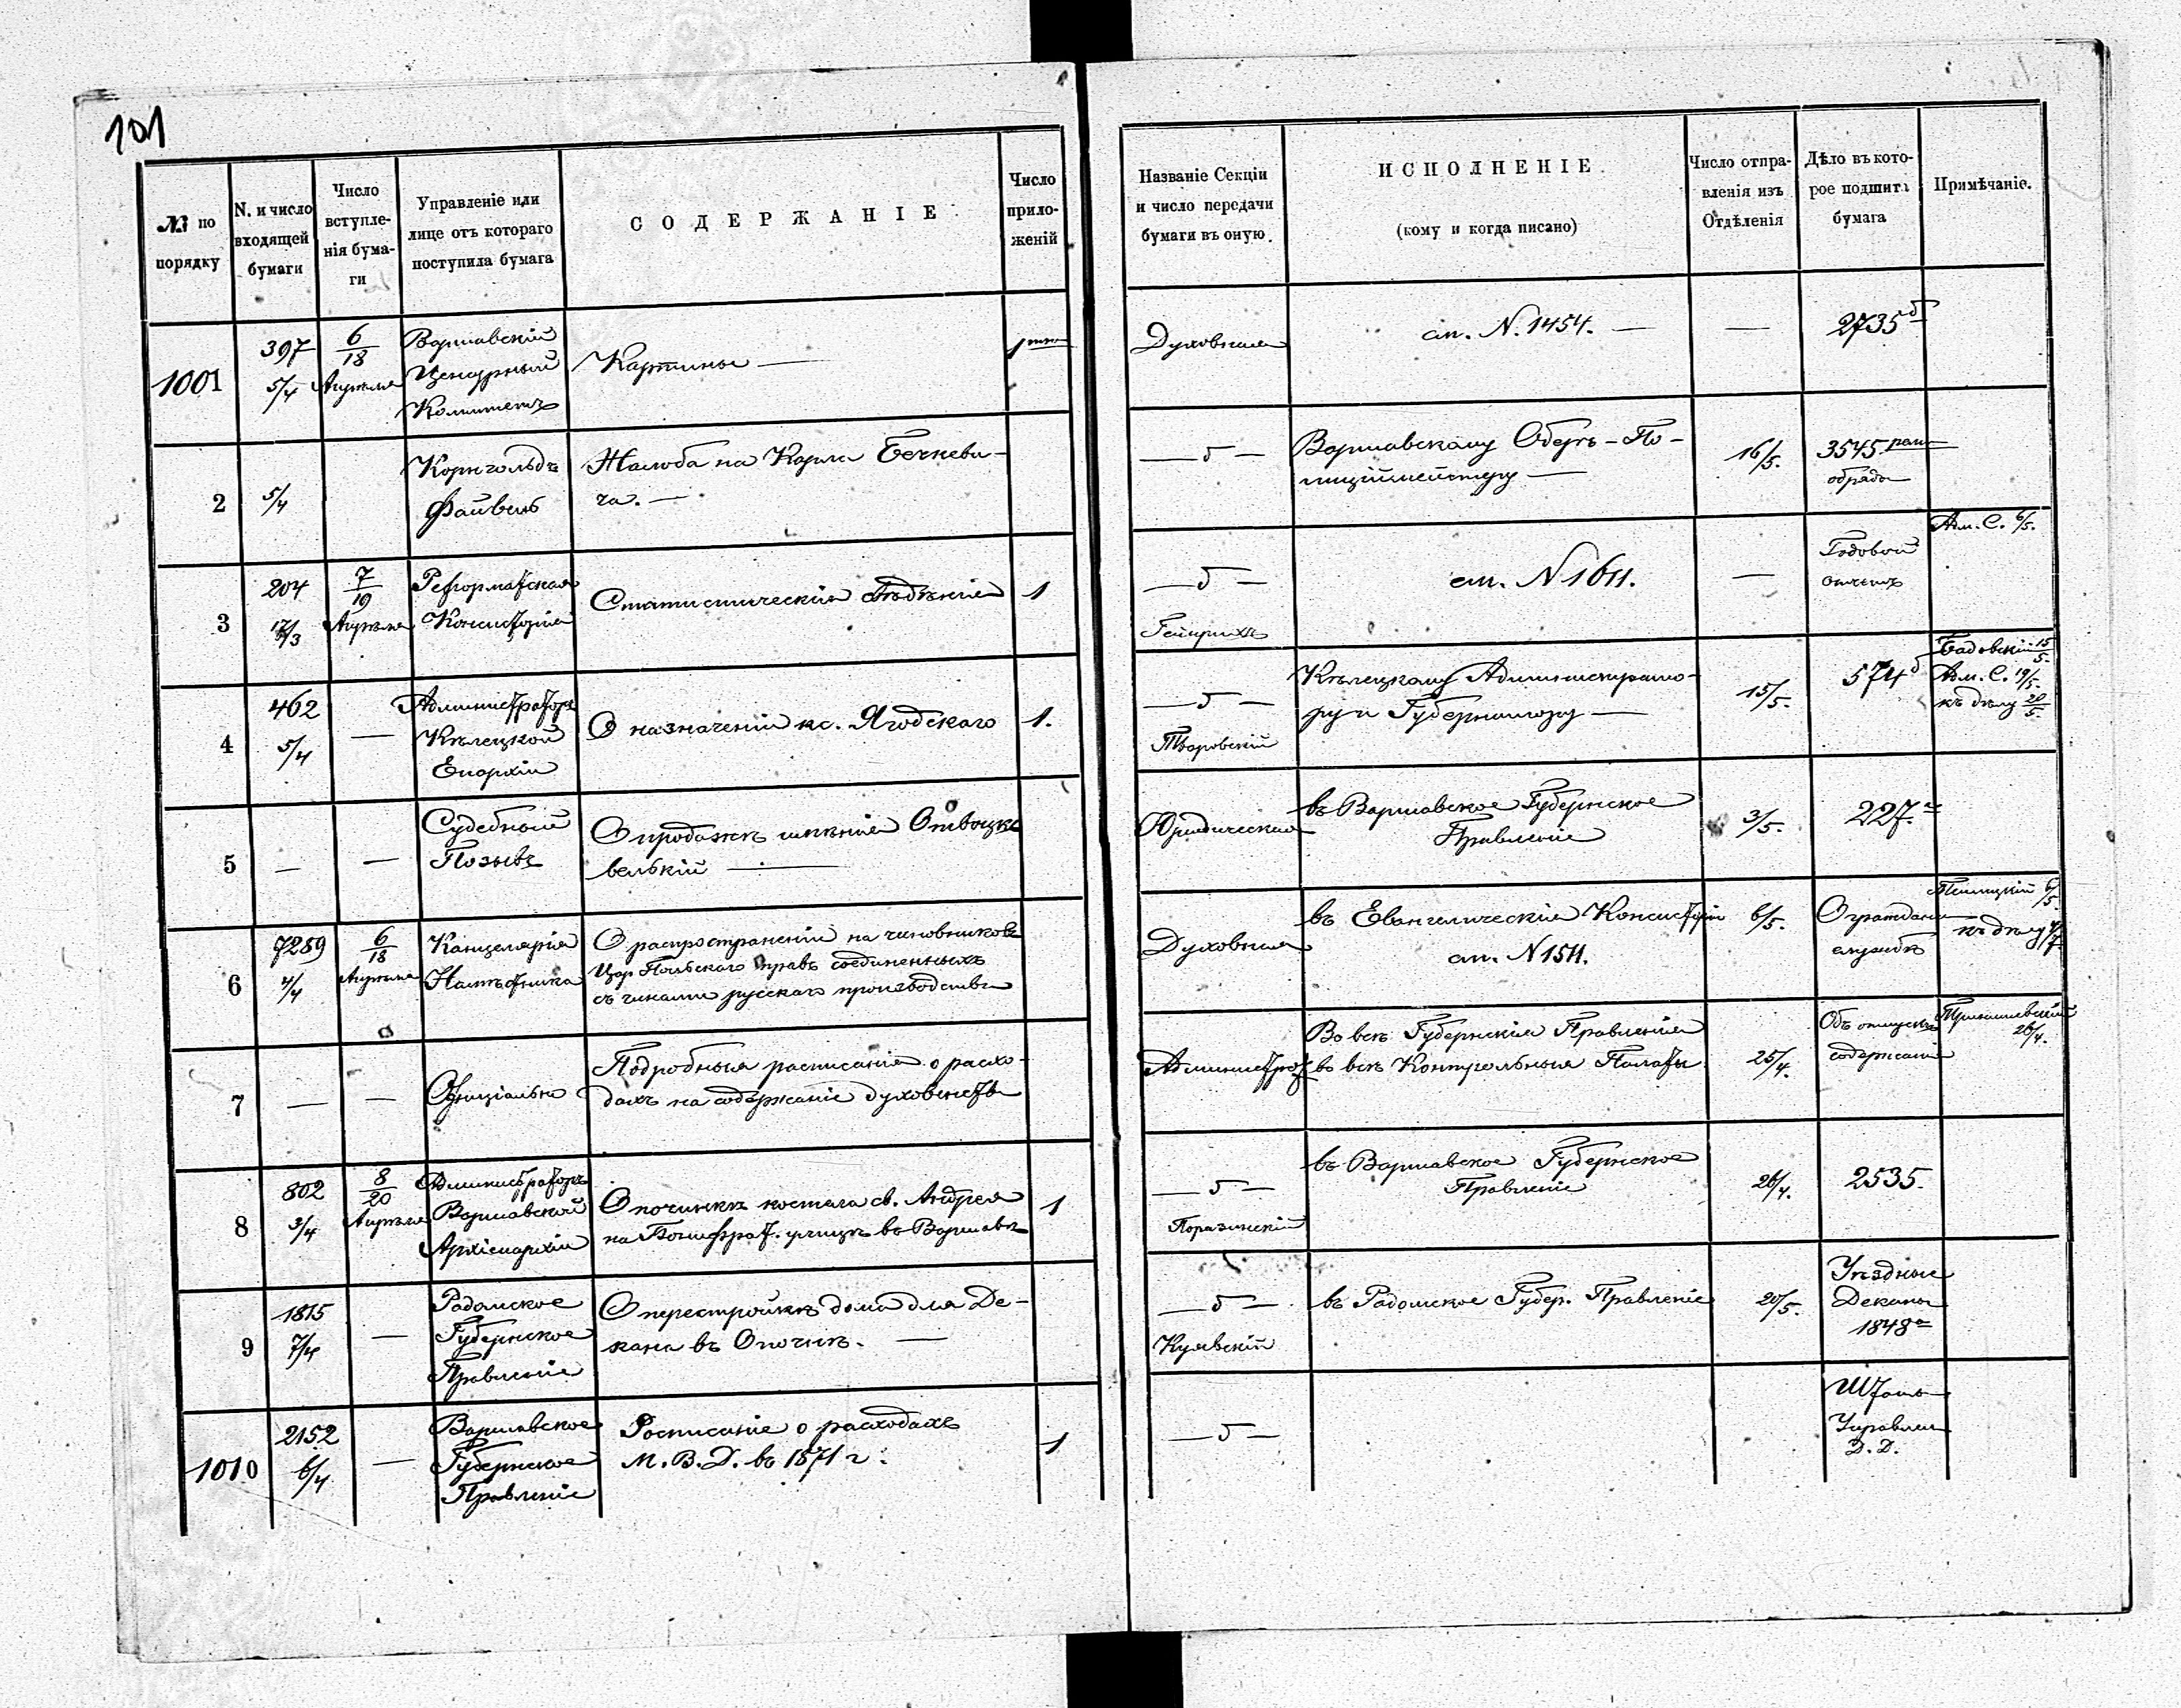 101
№ по
порядку
N. и число
входящей
бумаги
Число
вступле-
нія бума-
ги
Управленіе или
лице отъ котораго
поступила бумага
СОДЕРЖАНІЕ
Число
прило-
женій
Названіе Секціи
и число передачи
бумаги въ оную.
ИСПОЛНЕНІЕ
(кому и когда писано)
Число отпра-
вленія изъ
Отдѣленія
Дѣло въ кото-
рое подшита
бумага
Примѣчаніе.
1001
397
5/4
6/18
Апрѣля
Варшавскій
Ценсурный
Комитетъ
Картины —
Духовная
см. N. 1454. —
—
2735
2
5/4
Корнгольдъ
Файвель
Жалоба на Карла Бечкеви-
ча. —
Варшавскому Оберъ-По-
лиціймейстеру —
16/5.
3545
обряда
3
204
17/3
7/19
Апрѣля
Реформатская
Консисторія
Статистическія свѣдѣнія
1
см. N 1611.
—
Годовой
отчетъ
Адм. С. 6/5.
4
462
5/4
—
Администраторъ
Кѣлецкой
Епархіи
О назначеніи кс. Ягодскаго
1.
Кѣлецкому Администрато-
ру и Губернатору —
15/5.
574
Бадовскій 15/5.
Адм. С. 19/5.
къ дѣлу 20/5.
5
—
—
Судебный
Позывъ
О продажѣ имѣнія Отвоцкъ
велькій —
Юридическая
въ Варшавское Губернское
Правленіе
3/5.
227.
6
7289
4/4
6/18
Апрѣля
Канцелярія
Намѣстника
О распространеніи на чиновниковъ
Цар. Польскаго правъ соединенныхъ
съ чинами русскаго производства
Духовная
въ Евангелическія Консисторіи
см. N 1511.
6/5.
О граждан.
службѣ
къ дѣлу
7
—
—
Официально
Подробныя росписанія о расхо-
дахъ на содержаніе духовенства
Администрат.
Во всѣ Губернскія Правленія
во всѣ Контрольныя Палаты
25/4.
Объ отпускѣ
содержанія
26/4.
8
802
3/4
8/20
Апрѣля
Администраторъ
Варшавской
Архіепархіи
О починкѣ костела св. Андрея
на Бонифрат. улицѣ въ Варшавѣ
1
въ Варшавское Губернское
Правленіе
26/4.
2535.
9
1815
7/4
—
Радомское
Губернское
Правленіе
О перестройкѣ дома для Де-
кана въ Опочнѣ. —
Куявскій
въ Радомское Губер. Правленіе
20/5.
Уѣздные
Деканы
1848
1010
2152
6/4
—
Варшавское
Губернское
Правленіе
Росписаніе о расходахъ
М. В. Д. въ 1871 г.
1
Штатъ
Управлен.
Д. Д.